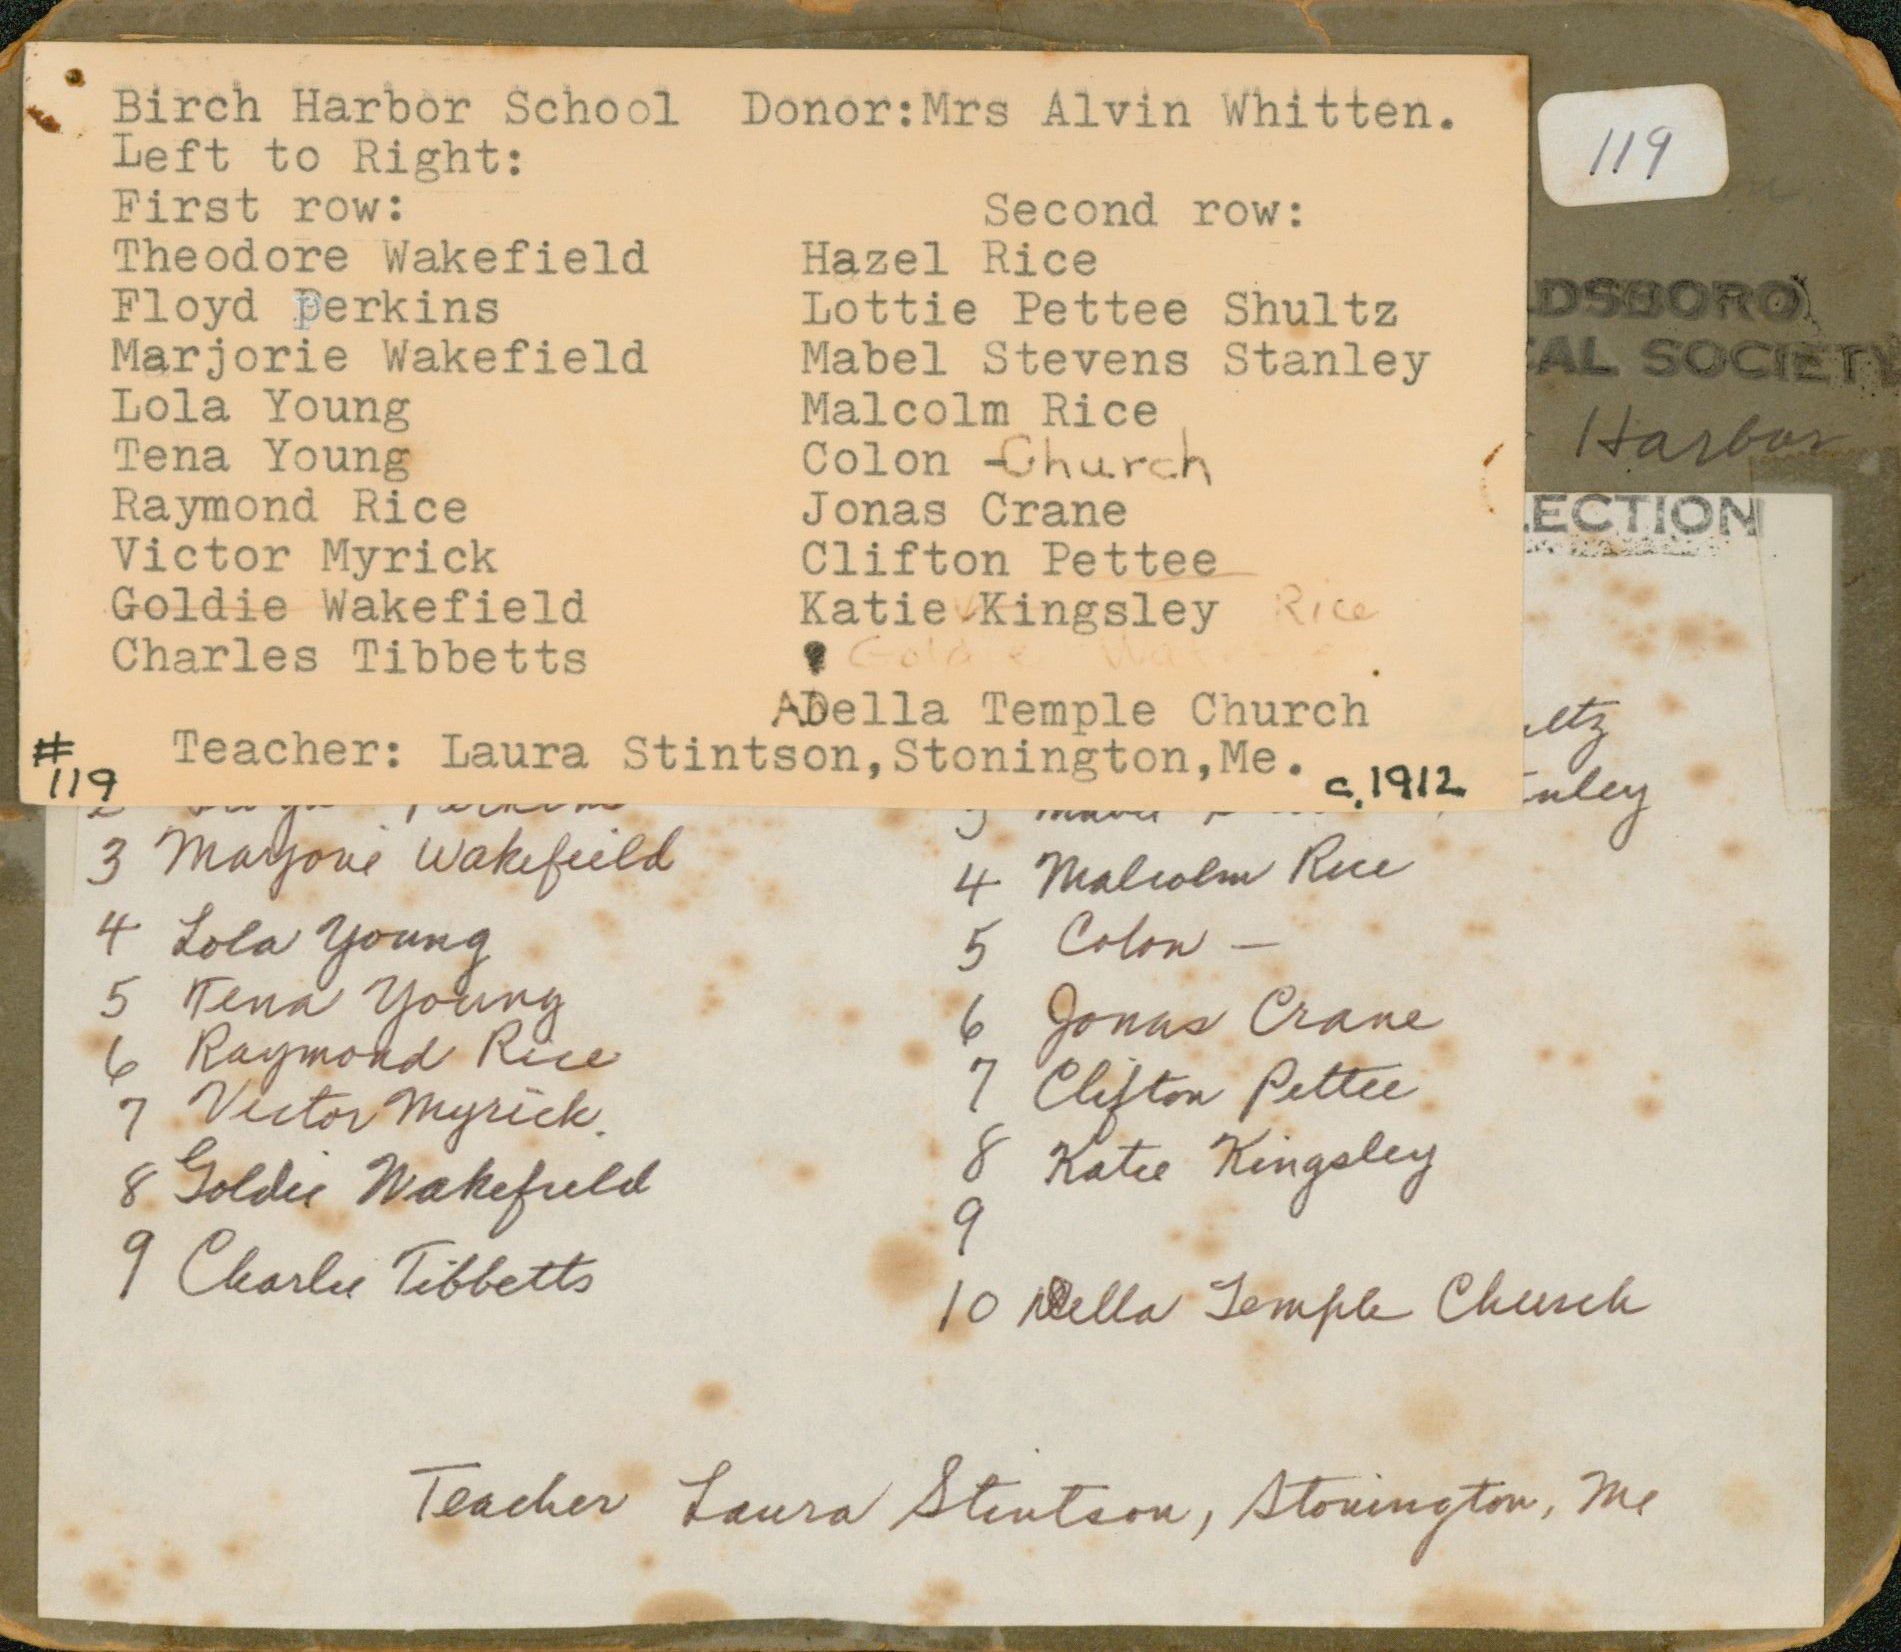 Birch Harbor School Donor:Mrs Alvin Whitten.
Left to Right:
First row: Second row:
Theodore Wakefield Hazel Rice
Floyd Perkins Lottie Pettee Shultz
Marjorie Wakefield Mabel Stevens Stanley
Lola Young Malcolm Rice
Tena Young Colon - Church
Raymond Rice Jonas Crane
Victor Myrick Clifton Pettee
Goldie Wakefield Katie Kingsley Rice
Charles Tibbetts Goldie
ADella Temple Church
Teacher: Laura Stintson, Stonington, Me.
# 119 c. 1912
119
DSBORO
CAL SOCIETY
Harbor
LECTION
ltz
nley
2 Perkins
3 Marjorie Wakefield 4 Malcolm Rice
4 Lola Young 5 Colon -
5 Tena Young 6 Jonas Crane
6 Raymond Rice 7 Clifton Pettee
7 Victor Myrick. 8 Katie Kingsley
8 Goldie Wakefield 9
9 Charlie Tibbetts 10 Della Temple Church
Teacher Laura Stintson, Stonington, Me